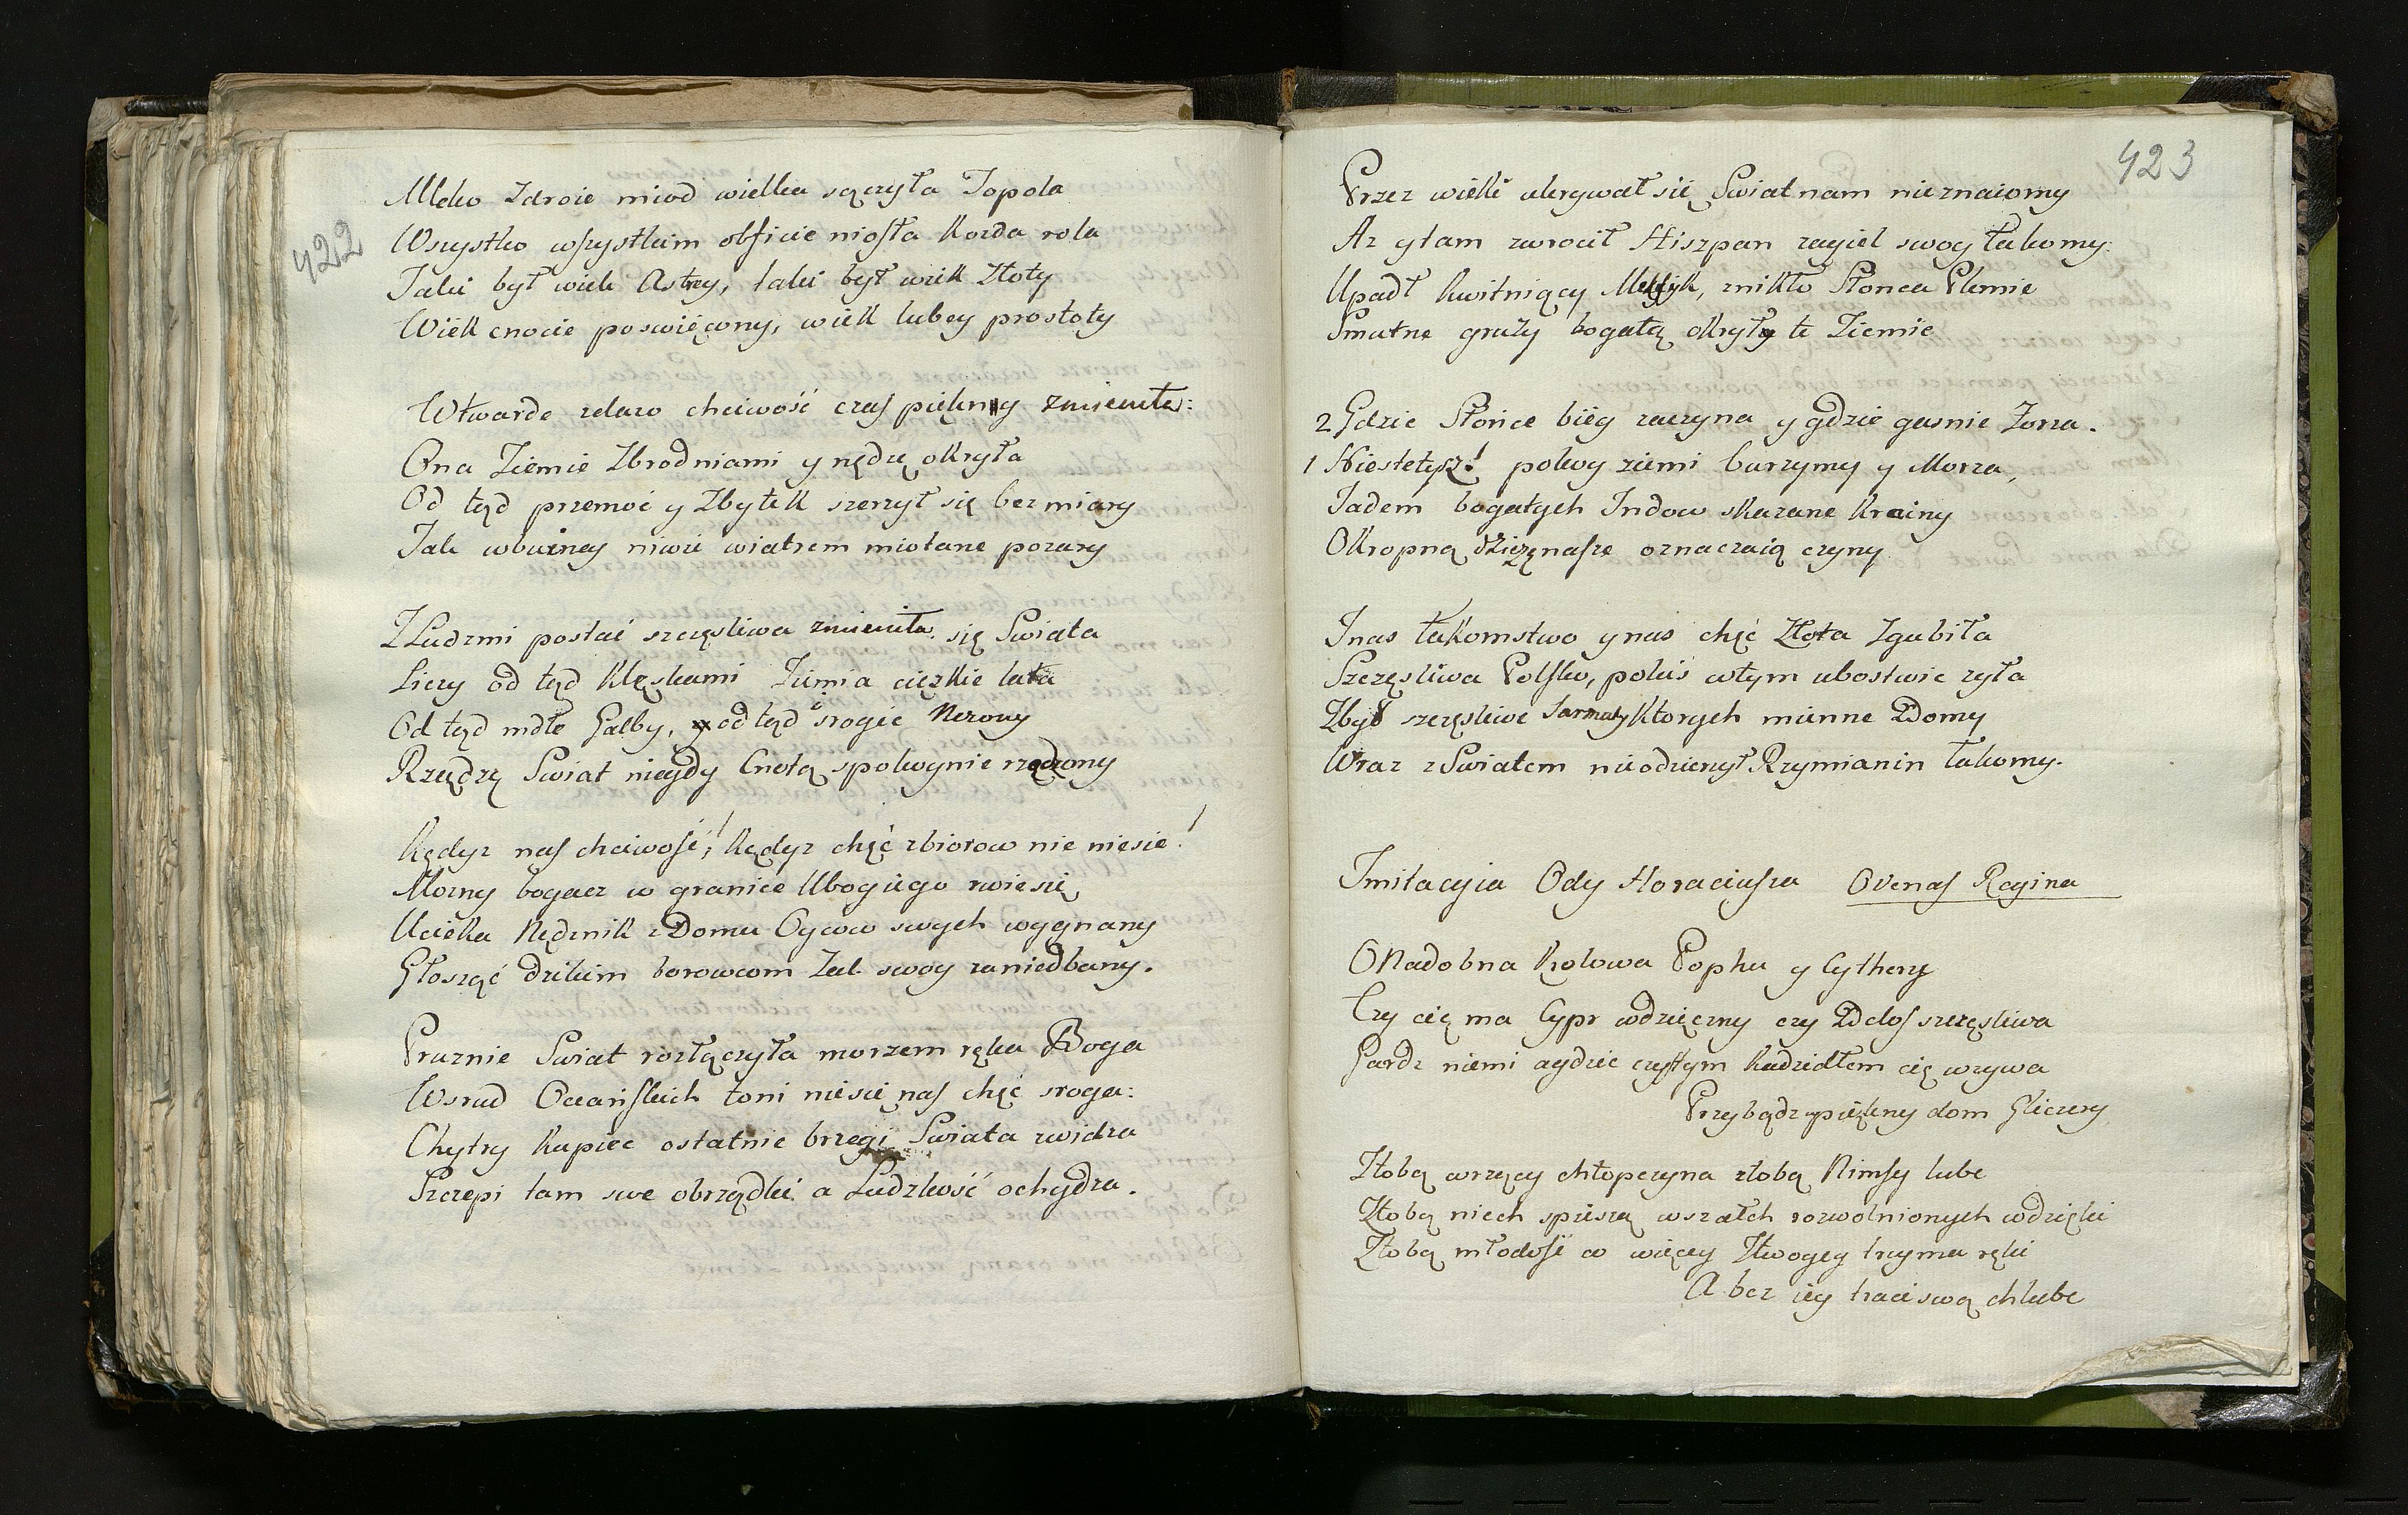 422
Mleko Zdroie miod wielka sączyła Topola
Wszystko wszystkim obficie niosła Kożda rola
Jaki był wiek Astrey, taki był wiek Złoty
Wiek cnocie poswięcony, wiek lubey prostoty
Wtwarde zelazo chciwość czas piękny zmieniła:
Ona Ziemie Zbrodniami y nędzę okryła
Od tąd przemoć y Zbytek szerzył się bez miary
Jak wbuiney niwie wiatrem miotane pozary
Z Ludzmi postać szczęsliwa zmieniła się Swiata
Liczy od tąd Klęskami Ziemia cięzkie lata
Od tąd mdłe Galby, od tąd srogie Nerony
Rządzę Swiat niegdy Cnotą spokoynie rządzony
Kędyz nas chciwość! Kędyz chęć zbiorow nie niesie!
Mozny bogacz w granice Ubogiego rwie się
Ucieka Nędznik z Domu Oycow swych wygnany
Głosząć dzikim borowcom Zal swoy zaniedbany.
Pruznie Swiat rozłączyła morzem ręka Boga
Wsrud Oceańskich toni niesie nas chęć sroga:
Chytry Kupiec ostatnie brzegi Swiata zwidza
Szczepi tam swe obrządki a Ludzkość ochydza.
423
Przez wieki ukrywał się Swiat nam nieznaiomy
Az y tam zwrocił Hiszpan zagiel swoy łakomy:
Upadł Kwitniący Mexyk, znikło Słonca Plemie
Smutne gruzy bogatą okryły te Ziemie
2 Gdzie Słońce bieg zaczyna y gdzie gasnie Zorza.
1 Niestetysz! pokoy ziemi burzymy y Morza,
Jadem bogatych Indow skazane Krainy
Okropną dziczę nasze oznaczaią czyny
Inas łakomstwo y nas chęć Złota Zgubiła
Szczęsliwa Polska, pokiś wtym ubostwie zyła
Zbyt szczęsliwe Sarmaty Ktorych mienne Domy
Wraz z Swiatem nieodzierzył Rzymianin łakomy.
Imitacyia Ody Horaciusza O Venas Regina
O Nadobna Krolowa Pophu y Cythery
Czy cię ma Cypr wdzięczny czy Delos szczęsliwa
Gardz niemi a gdzie czystym Kadzidłem cię wzywa
Przybądz w piękny dom Gliczery
Ztobą wrzący chłopczyna ztobą Nimfy lube
Ztobą niech spieszą wszatch rozwolnionych wdzięki
Ztobą młodość co więcey Ztwogey trzyma ręki
A bez iey traci swą chlube